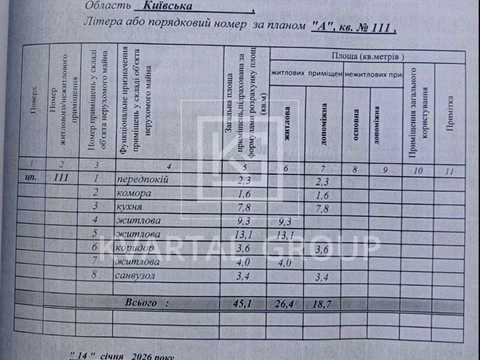 Область Київська ,
Літера або порядковий номер за планом "А", кв. № 111 ,
Поверх
Номер житлового/нежитлового приміщення
Номер приміщень у складі об'єкта нерухомого майна
Функціональне призначення приміщень у складі об'єкта нерухомого майна
Загальна площа приміщень, підрахована за формулами розрахунку площ (кв.м)
Площа (кв.метрів)
житлових приміщен
нежитлових при
житлова
допоміжна
основна
допоміжна
Приміщення загального користування
Примітка
1 2 3 4 5 6 7 8 9 10 11
цп. 111 1 передпокій 2,3 2,3
2 комора 1,6 1,6
3 кухня 7,8 7,8
4 житлова 9,3 9,3
5 житлова 13,1 13,1
6 коридор 3,6 3,6
7 житлова 4,0 4,0
8 санвузол 3,4 3,4
Всього : 45,1 26,4 18,7
" 14 " січня 2026 року
KVARTAL GROUP